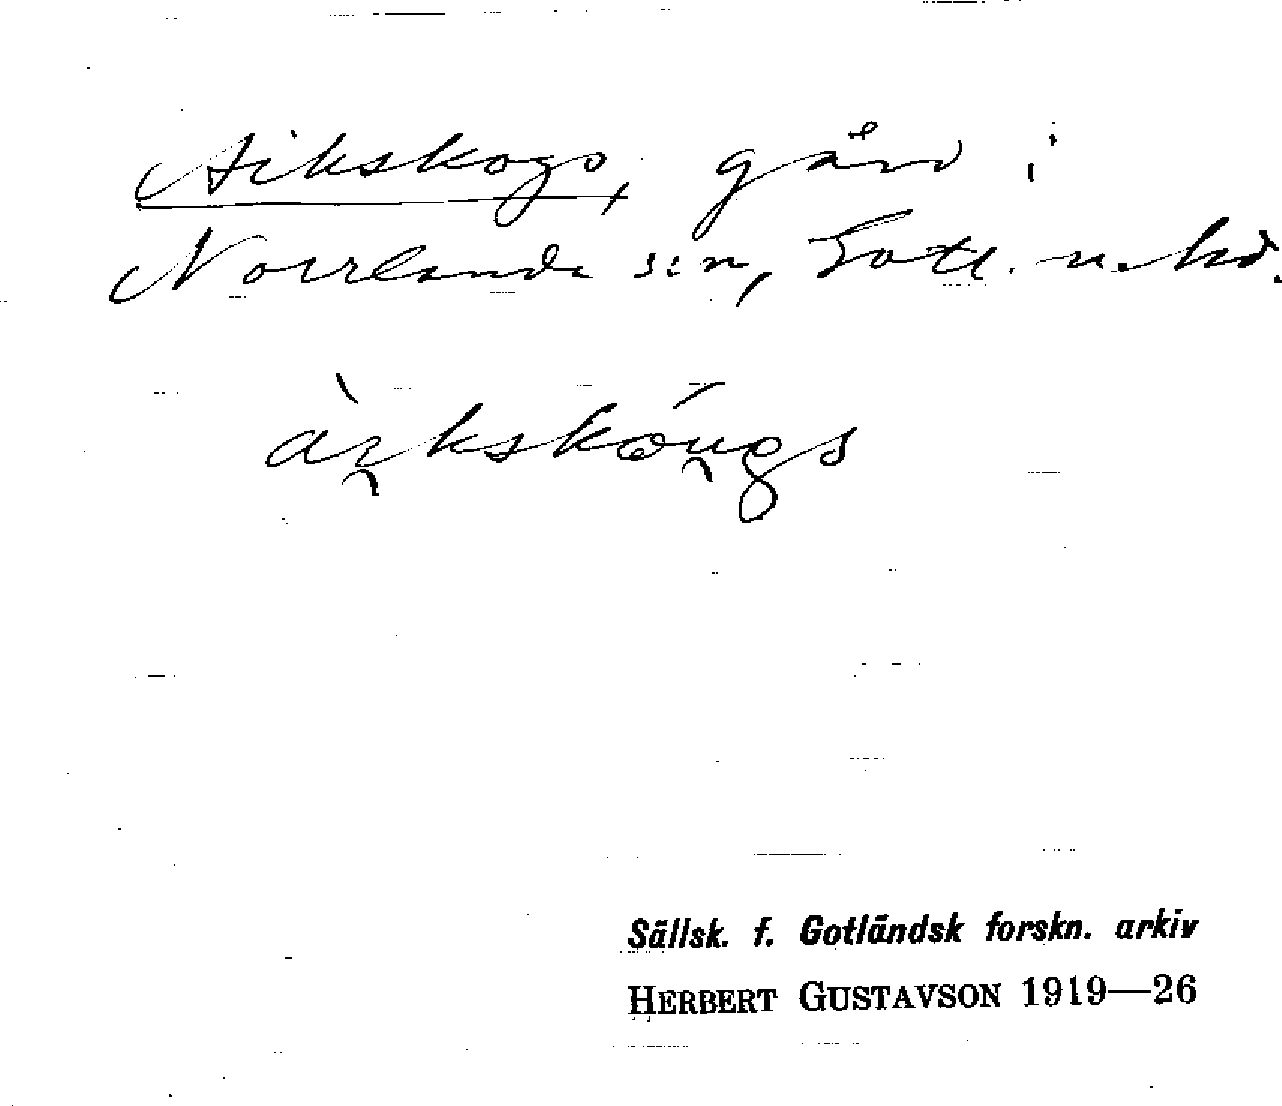 Aikskogs, gård i
Norrlanda s:n, Gotl. n. hd.
àı̯kskóu̯gs
Sällsk. f. Gotländsk forskn. arkiv
HERBERT GUSTAVSON 1919—26